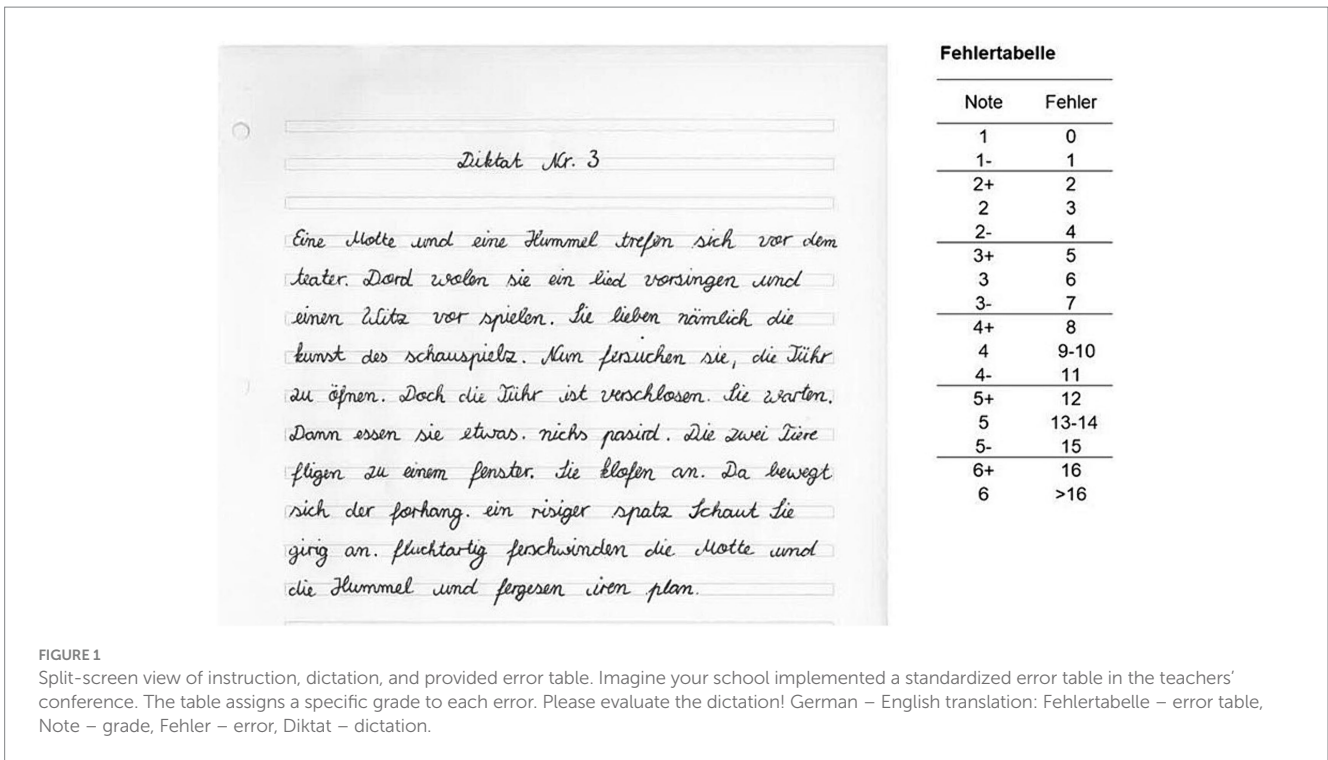 Diktat Nr. 3
Eine Motte und eine Hummel trefen sich vor dem
teater. Dord wolen sie ein lied vorsingen und
einen Witz vor spielen. Sie lieben nämlich die
kunst des schauspielz. Nun fersuchen sie, die Tühr
zu öfnen. Doch die Tühr ist verschlosen. Sie warten.
Dann essen sie etwas. nichs pasird. Die zwei Tiere
fligen zu einem fenster. Sie klofen an. Da bewegt
sich der forhang. ein risiger spatz Schaut Sie
girig an. fluchtartig ferschwinden die Motte und
die Hummel und fergesen iren plan.
Fehlertabelle
Note Fehler
1 0
1- 1
2+ 2
2 3
2- 4
3+ 5
3 6
3- 7
4+ 8
4 9-10
4- 11
5+ 12
5 13-14
5- 15
6+ 16
6 >16
FIGURE 1
Split-screen view of instruction, dictation, and provided error table. Imagine your school implemented a standardized error table in the teachers’
conference. The table assigns a specific grade to each error. Please evaluate the dictation! German – English translation: Fehlertabelle – error table,
Note – grade, Fehler – error, Diktat – dictation.